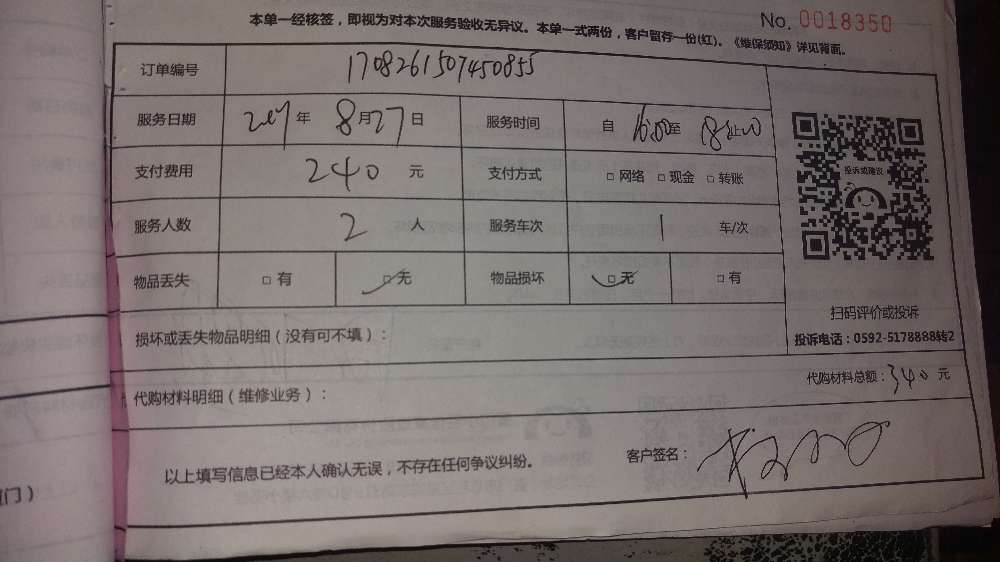 本单一经核签，即视为对本次服务验收无异议。本单一式两份，客户留存一份(红)。《维保须知》详见背面。
No. 0018350
订单编号 1708261507450855
服务日期 2017年 8月27日 服务时间 自 16:00至 18:00止
支付费用 240 元 支付方式 □ 网络 □ 现金 □ 转账
服务人数 2 人 服务车次 1 车/次
物品丢失 □ 有 □ 无 物品损坏 □ 无 □ 有
投诉或建议
扫码评价或投诉
投诉电话：0592-5178888转2
损坏或丢失物品明细（没有可不填）：
代购材料明细（维修业务）： 代购材料总额：340 元
以上填写信息已经本人确认无误，不存在任何争议纠纷。 客户签名：
门）